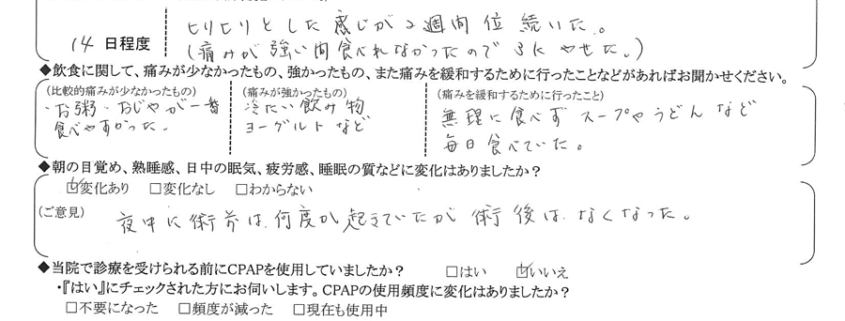 ヒリヒリとした感じが2週間位続いた。
14日程度
(痛みが強い間食べれなかったので3kやせた。)
◆飲食に関して、痛みが少なかったもの、強かったもの、また痛みを緩和するために行ったことなどがあればお聞かせください。
(比較的痛みが少なかったもの)
・お粥・おじやが一番
食べやすかった。
(痛みが強かったもの)
冷たい飲み物
ヨーグルトなど
(痛みを緩和するために行ったこと)
無理に食べず スープやうどんなど
毎日食べていた。
◆朝の目覚め、熟睡感、日中の眠気、疲労感、睡眠の質などに変化はありましたか?
☑変化あり □変化なし □わからない
(ご意見)
夜中に術前は何度か起きていたが術後はなくなった。
◆当院で診療を受けられる前にCPAPを使用していましたか? □はい ☑いいえ
・『はい』にチェックされた方にお伺いします。CPAPの使用頻度に変化はありましたか?
□不要になった □頻度が減った □現在も使用中